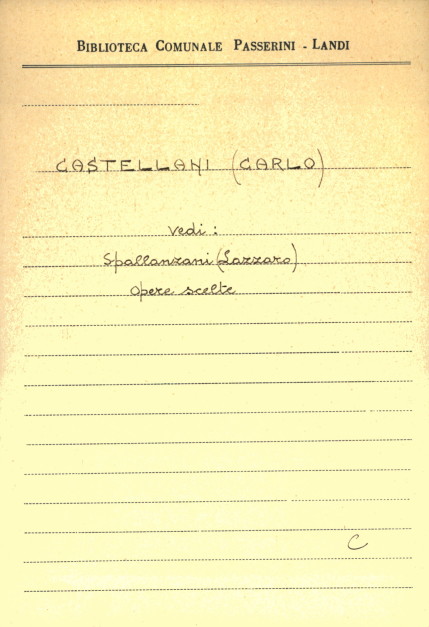 BIBLIOTECA COMUNALE PASSERINI - LANDI
CASTELLANI (CARLO)
Vedi:
Spallanzani (Lazzaro)
Opere scelte
C